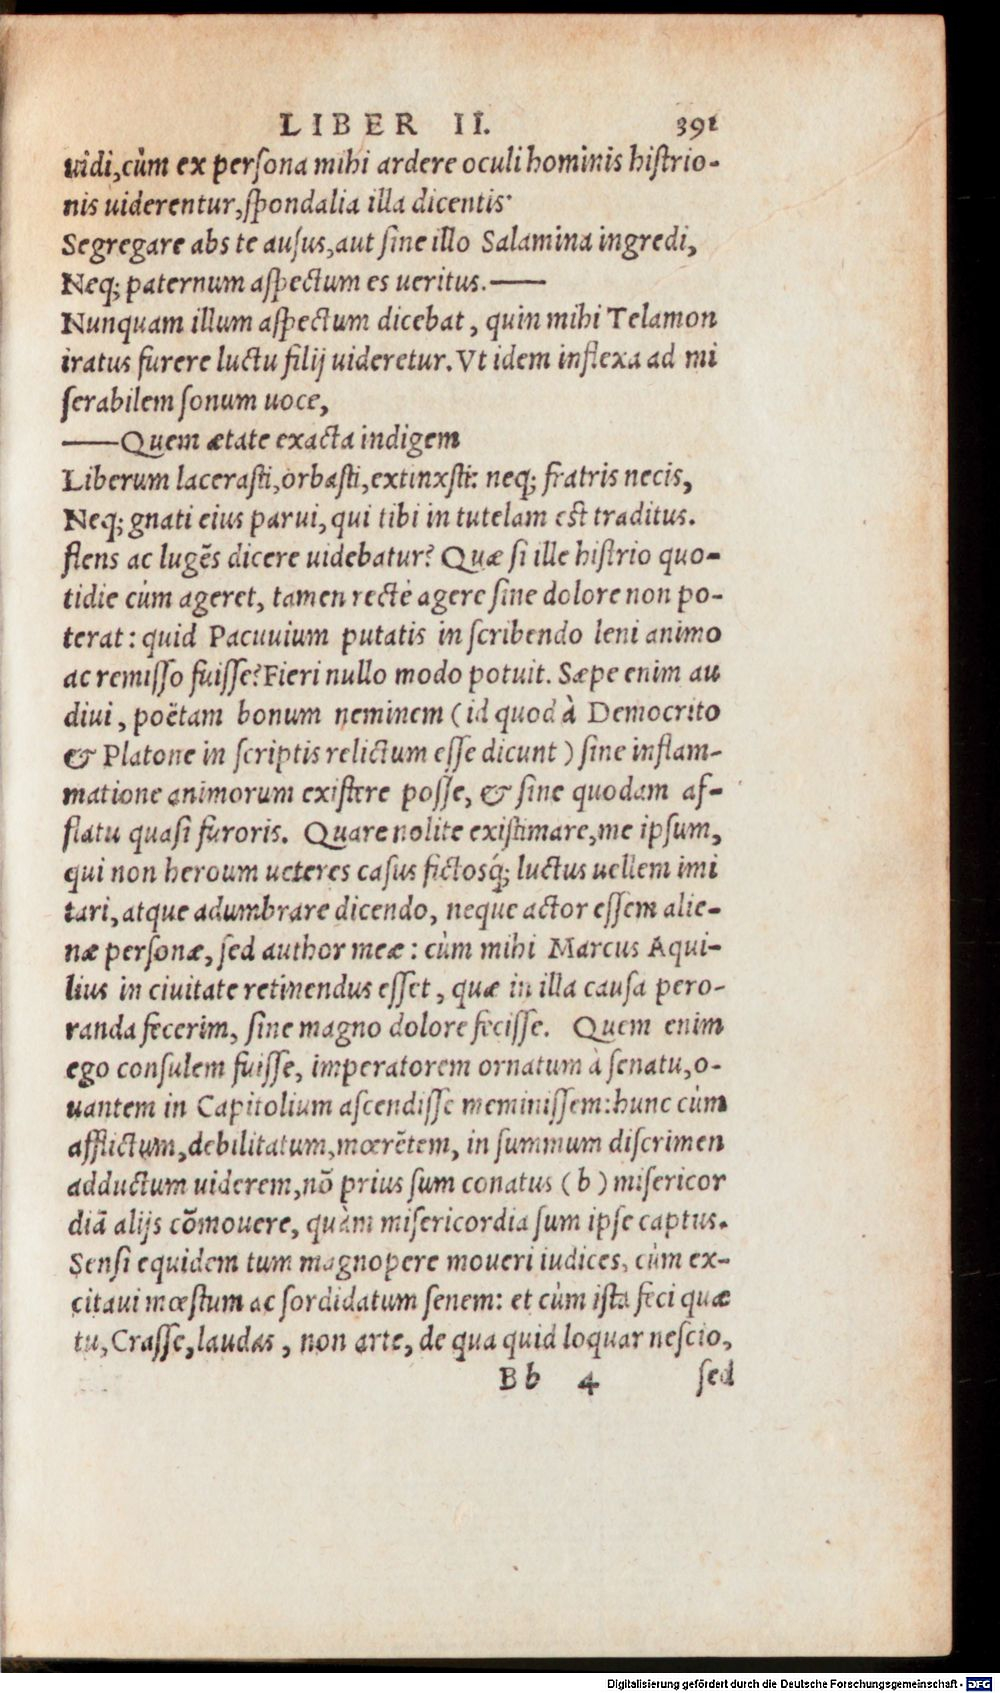 LIBER II. 391
uidi,cùm ex persona mihi ardere oculi hominis histrio-
nis uiderentur,spondalia illa dicentis·
Segregare abs te ausus,aut sine illo Salamina ingredi,
Neq; paternum aspectum es ueritus.——
Nunquam illum aspectum dicebat, quin mihi Telamon
iratus furere luctu filij uideretur. Vt idem inflexa ad mi
serabilem sonum uoce,
——Quem ætate exacta indigem
Liberum lacerasti,orbasti,extinxsti: neq; fratris necis,
Neq; gnati eius parui, qui tibi in tutelam est traditus.
flens ac lugēs dicere uidebatur? Quæ si ille histrio quo-
tidie cùm ageret, tamen rectè agere sine dolore non po-
terat: quid Pacuuium putatis in scribendo leni animo
ac remisso fuisse? Fieri nullo modo potuit. Sæpe enim au
diui, poëtam bonum neminem (id quod à Democrito
& Platone in scriptis relictum esse dicunt) sine inflam-
matione animorum existere posse, & sine quodam af-
flatu quasi furoris. Quare nolite existimare,me ipsum,
qui non heroum ueteres casus fictosq́; luctus uellem imi
tari, atque adumbrare dicendo, neque actor essem alie-
næ personæ, sed author meæ: cùm mihi Marcus Aqui-
lius in ciuitate retinendus esset, quæ in illa causa pero-
randa fecerim, sine magno dolore fecisse. Quem enim
ego consulem fuisse, imperatorem ornatum à senatu,o-
uantem in Capitolium ascendisse meminissem:hunc cùm
afflictum,debilitatum,mœrētem, in summum discrimen
adductum uiderem,nō prius sum conatus (b) misericor
diā alijs cōmouere, quàm misericordia sum ipse captus.
Sensi equidem tum magnopere moueri iudices, cùm ex-
citaui mœstum ac sordidatum senem: et cùm ista feci quæ
tu,Crasse,laudas, non arte, de qua quid loquar nescio,
Bb 4 sed
Digitalisierung gefördert durch die Deutsche Forschungsgemeinschaft - DFG